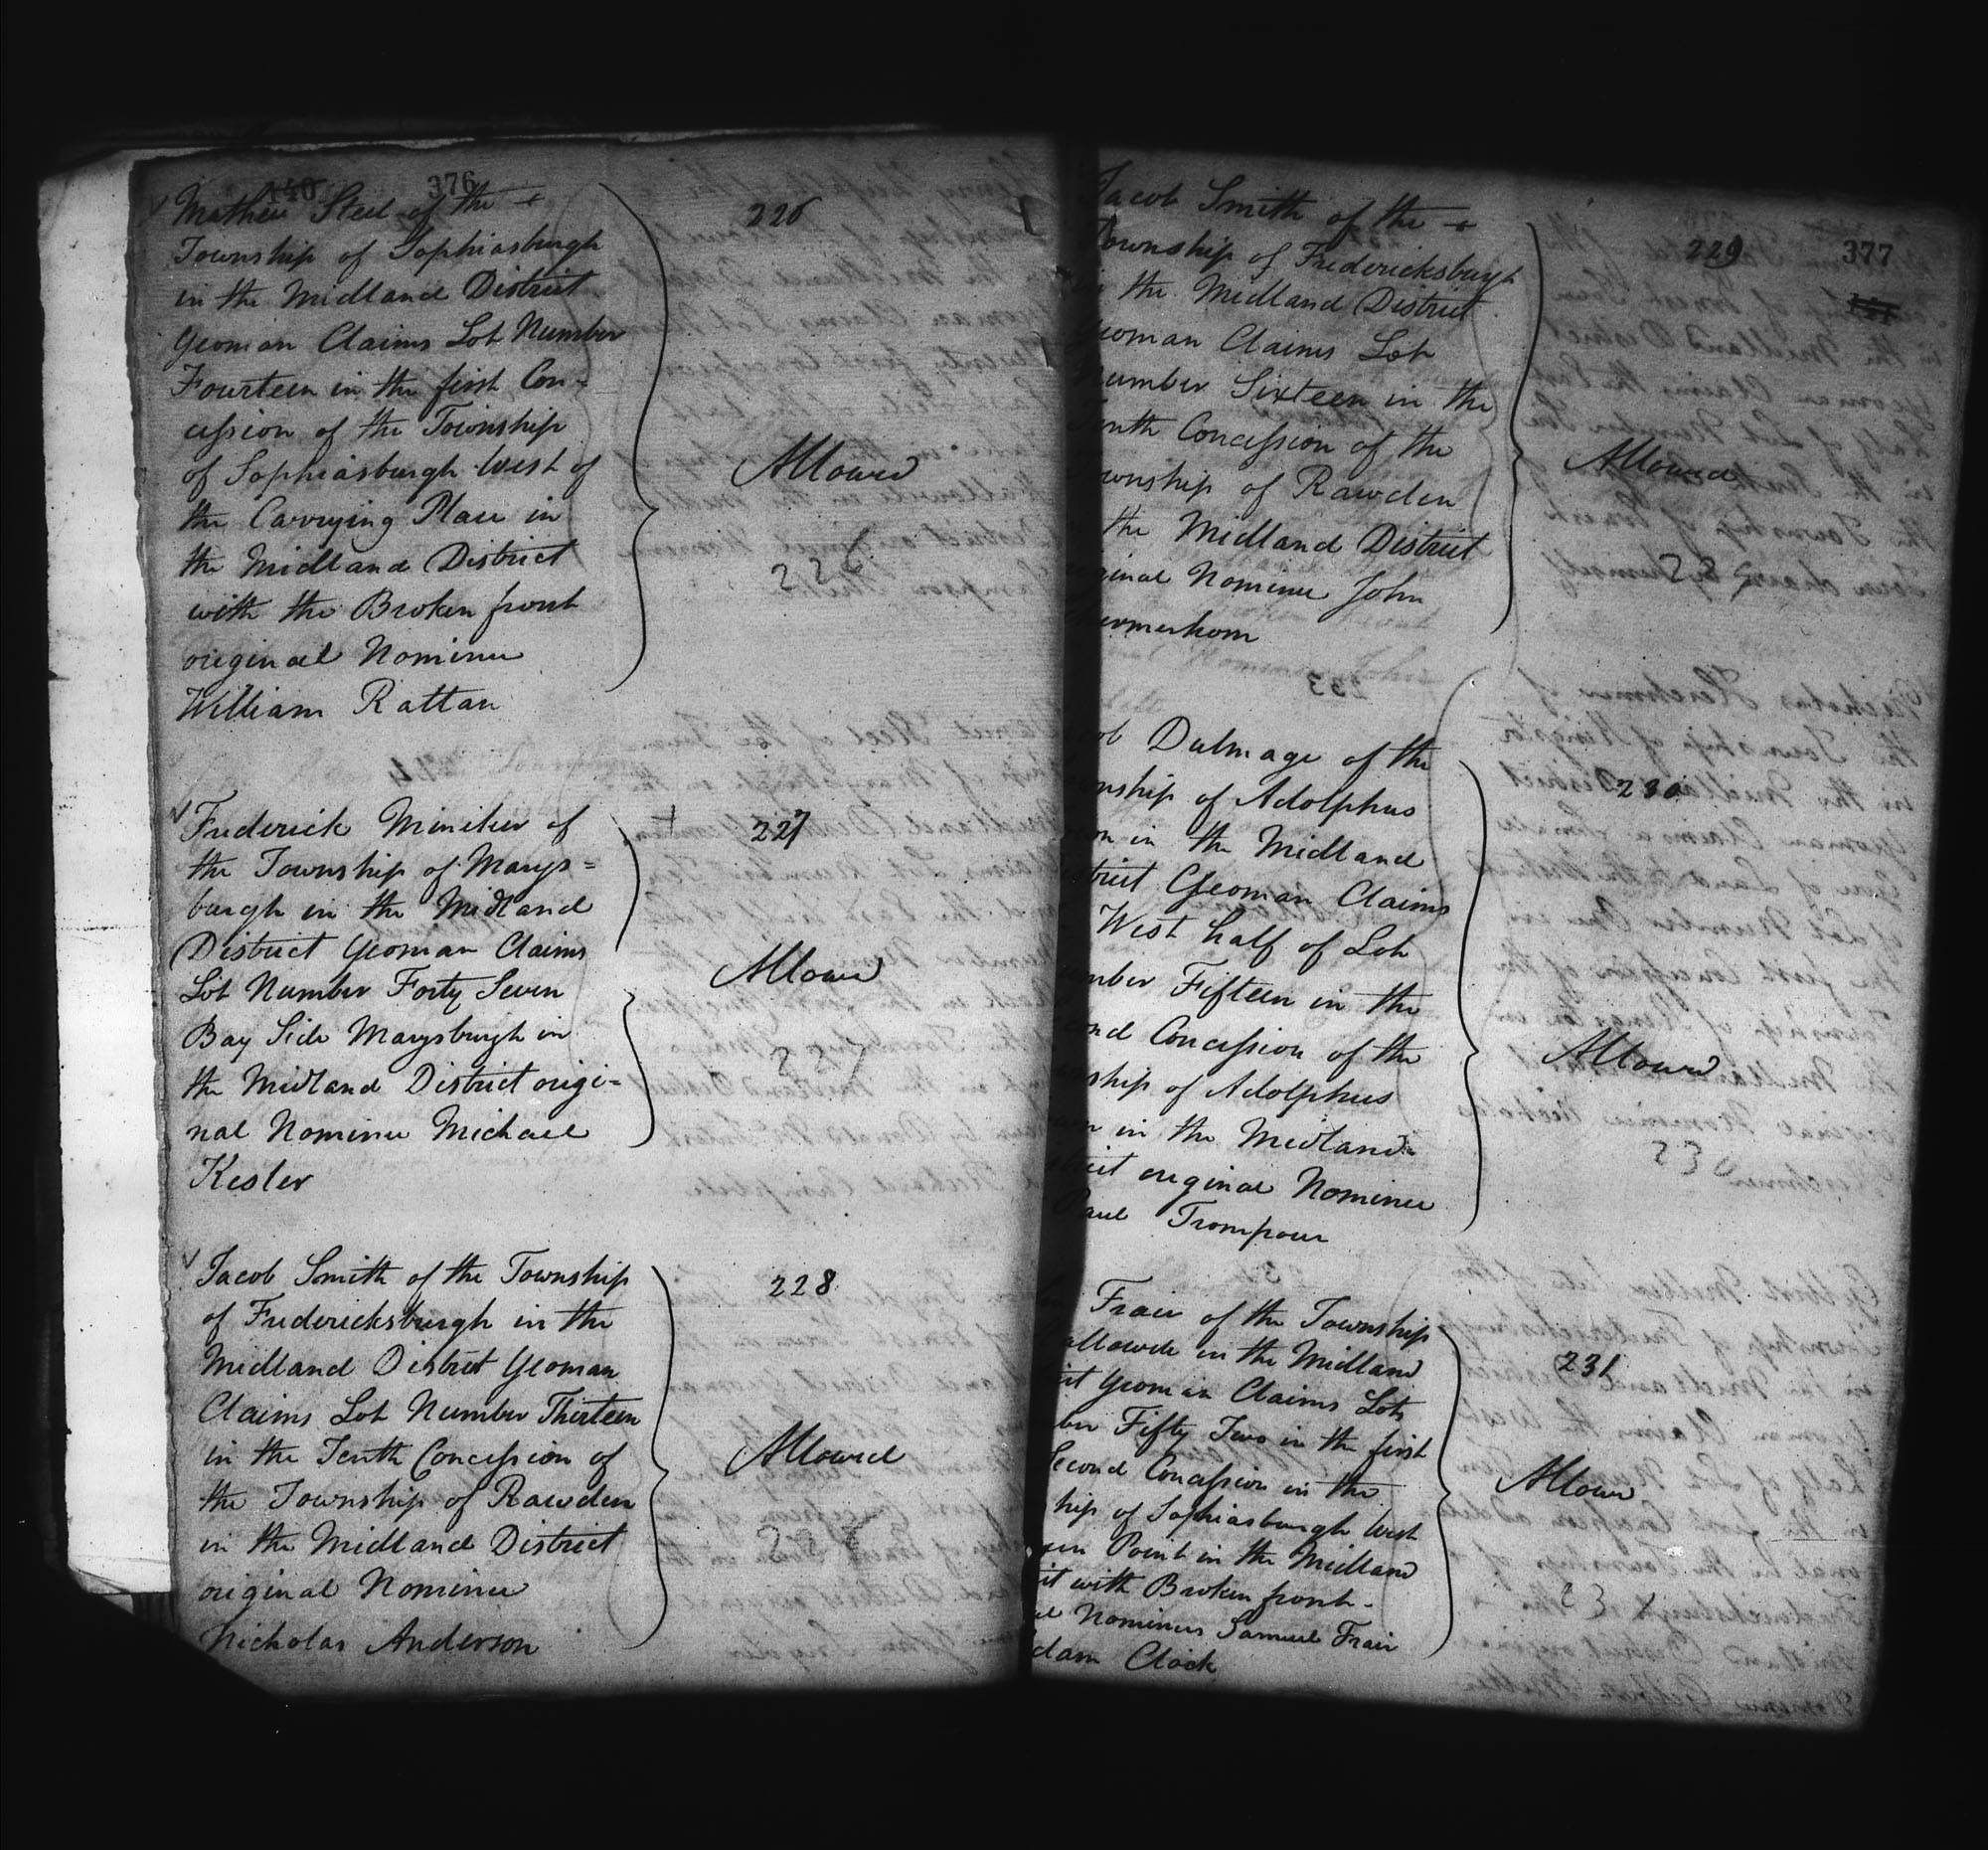 140 376
Mathew Steel of the +
Township of Sophiasburgh
in the Midland District
Yeoman Claims Lot Number
Fourteen in the first Con=
cession of the Township
of Sophiasburgh West of
the Carrying Place in
the Midland District
with the Broken front
original Nominee
William Rattan
226
Allowed
226
Frederick Miniker of
the Township of Marys=
burgh in the Midland
District Yeoman Claims
Lot Number Forty Seven
Bay Side Marysburgh in
the Midland District origi=
nal Nominee Michael
Kesler
+ 227
Allowed
227
Jacob Smith of the Township
of Fredericksburgh in the
Midland District Yeoman
Claims Lot Number Thirteen
in the Tenth Concession of
the Township of Rawden
in the Midland District
original Nominee
Nicholas Anderson
228
Allowed
228
377
Jacob Smith of the +
Township of Fredericksburgh
the Midland District
Yeoman Claims Lot
Number Sixteen in the
nth Concession of the
ownship of Rawden
the Midland District
ginal Nominee John
ermerhorn
229
Allowed
229
ob Dulmage of the
nship of Adolphus
on in the Midland
strict Yeoman Claims
West half of Lot
mber Fifteen in the
ond Concession of the
nship of Adolphus
in the Midland
strict original Nominee
Paul Trompour
230
Allowed
230
Frair of the Township
allowell in the Midland
ict Yeoman Claims Lots
ber Fifty Two in the first
Second Concession in the
ship of Sophiasburgh West
een Point in the Midland
it with Broken front
al Nominees Samuel Frair
dam Clock
231
Allowed
231